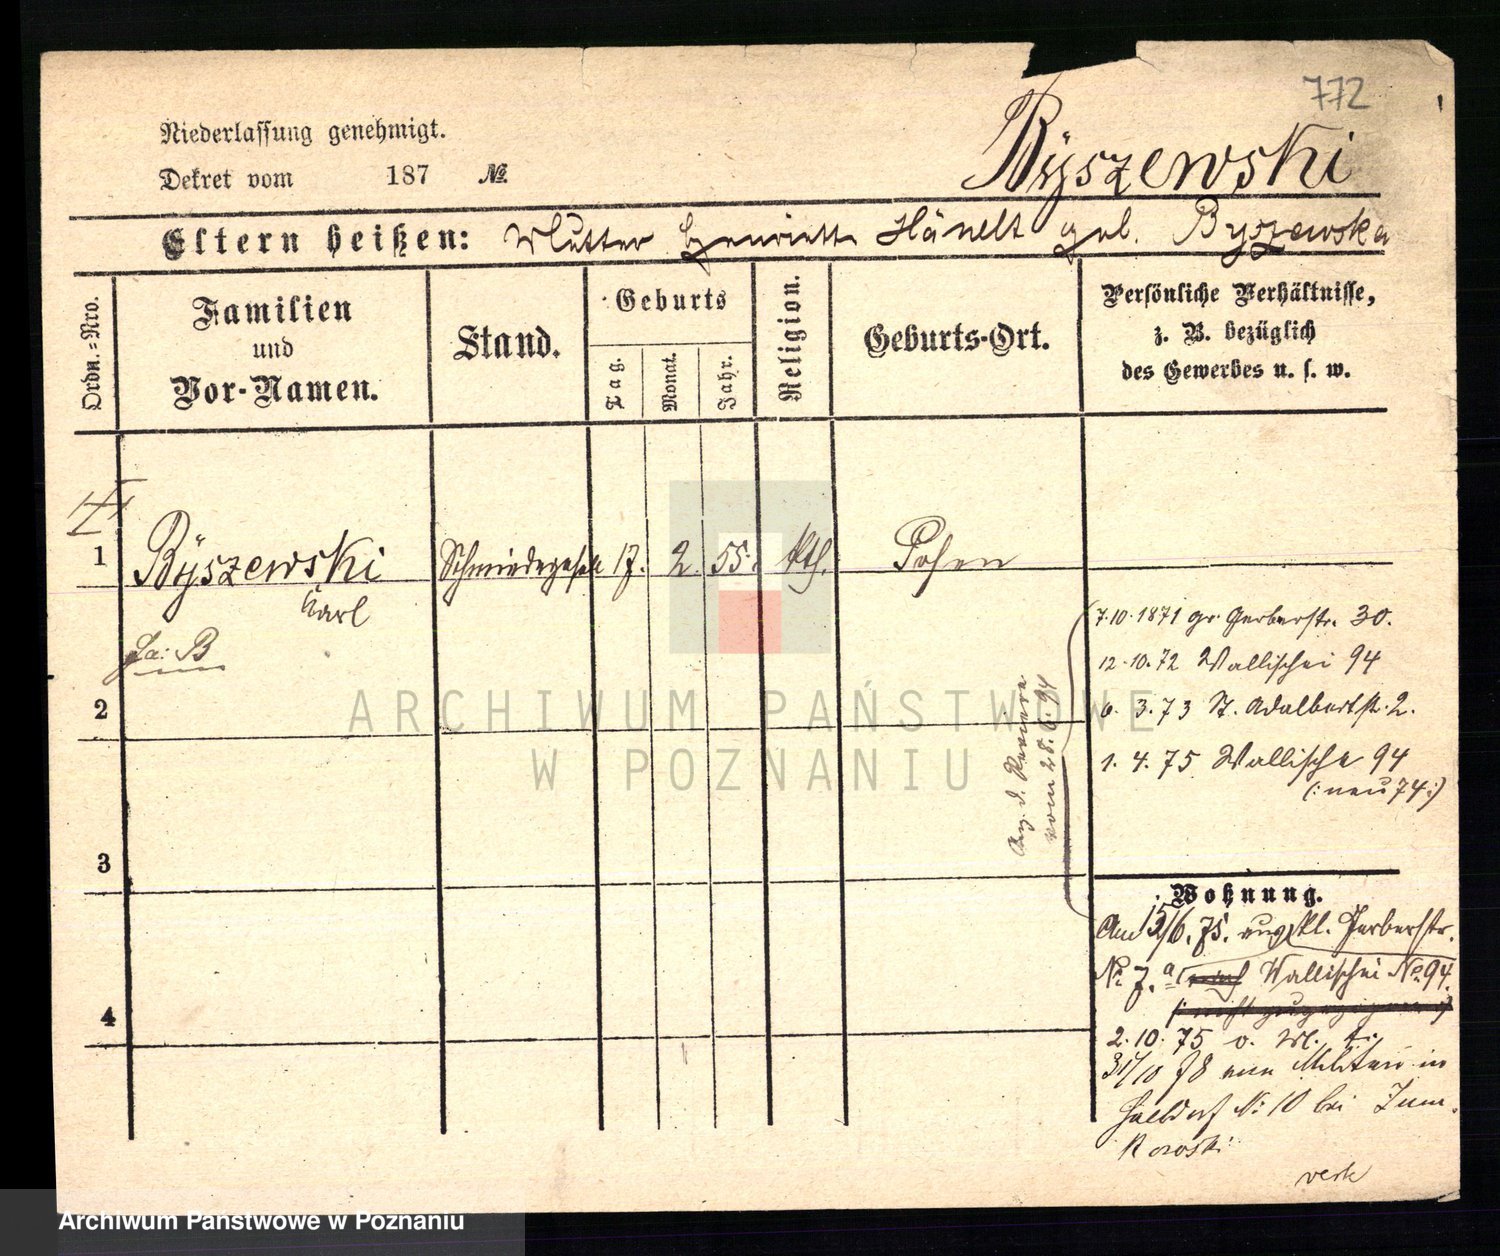 772
Niederlassung genehmigt.
Dekret vom 187 №.
Byszewski
Eltern heißen: Mutter Henriette Hänelt geb. Byszewska
Ordn.-Nro.
Familien
und
Vor-Namen.
Stand.
Geburts
Tag.
Monat.
Jahr.
Religion.
Geburts-Ort.
Persönliche Verhältnisse,
z. B. bezüglich
des Gewerbes u. s. w.
1 Byszewski Schmiedegesell 17. 2. 55. kth. Posen
Karl
La: B
7.10.1871 gr. Gerberstr. 30.
12.10.72 Wallischei 94
6. 3. 73 St. Adalbertstr. 2.
1. 4. 75 Wallischei 94
(: neu 74 :)
vom 28.6.94
2
3
4
Wohnung.
Am 15/6. 75. kl. Gerberstr.
No. 7.a Wallischei No. 94.
2.10.75 v. M.
31/10 78 vom Militair in
Halbdorf No 10 bei
verte
ARCHIWUM PAŃSTWOWE
W POZNANIU
Archiwum Państwowe w Poznaniu